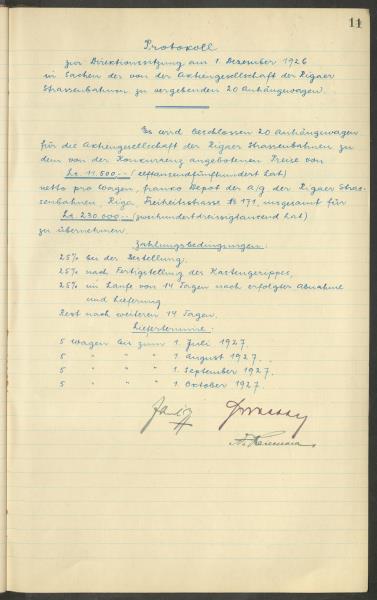 11
Protokoll
zur Direktionssitzung am 1. Dezember 1926
in Sachen der von der Aktiengesellschaft der Rigaer
Strassenbahnen zu vergebenden 20 Anhängewagen.
Es wird beschlossen 20 Anhängewagen
für die Aktiengesellschaft der Rigaer Strassenbahnen zu
dem von der Konkurrenz angebotenen Preise von
Ls. 11.500.-- (elftausendfünfhundert Lat)
netto pro Wagen, franko Depot der A/G. der Rigaer Stras-
senbahnen, Riga, Freiheitsstrasse № 171, insgesamt für
Ls. 230.000.-- (zweihundertdreissigtausend Lat)
zu übernehmen.
Zahlungsbedingungen:
25% bei der Bestellung,
25% nach Fertigstellung der Kastengerippes,
25% im Laufe von 14 Tagen nach erfolgter Abnahme
und Lieferung
Rest nach weiteren 14 Tagen.
Liefertermine:
5 Wagen bis zum 1. Juli 1927.
5 " " " 1. August 1927.
5 " " " 1. September 1927.
5 " " " 1. Oktober 1927.